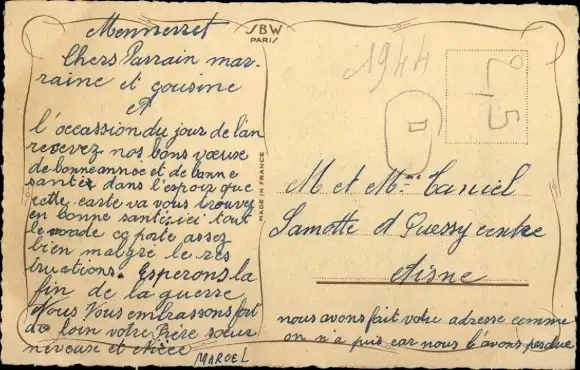 Mennerret
SBW
PARIS
Chers Parrain mar-
raine et cousine
A
l'occassion du jour de l'an
recevez nos bons vœuse
de bonne annoé et de bonne
santéé dans l'espoir que
cette carte va vous trouvez
en bonne santé ici tout
le monde ce porte assez
bien malgre le res
tructions. Esperons la
fin de la guerre
Nous Vous embrassons fort
de loin votre Frère soeur
neveuse et Nièce
MARCEL
MADE IN FRANCE
1944
2,5
M et Mme Caniel
Lamotte d Quessy centre
Aisne
nous avons fait votre adresse comme
on n'a puis car nous l'avons perdue